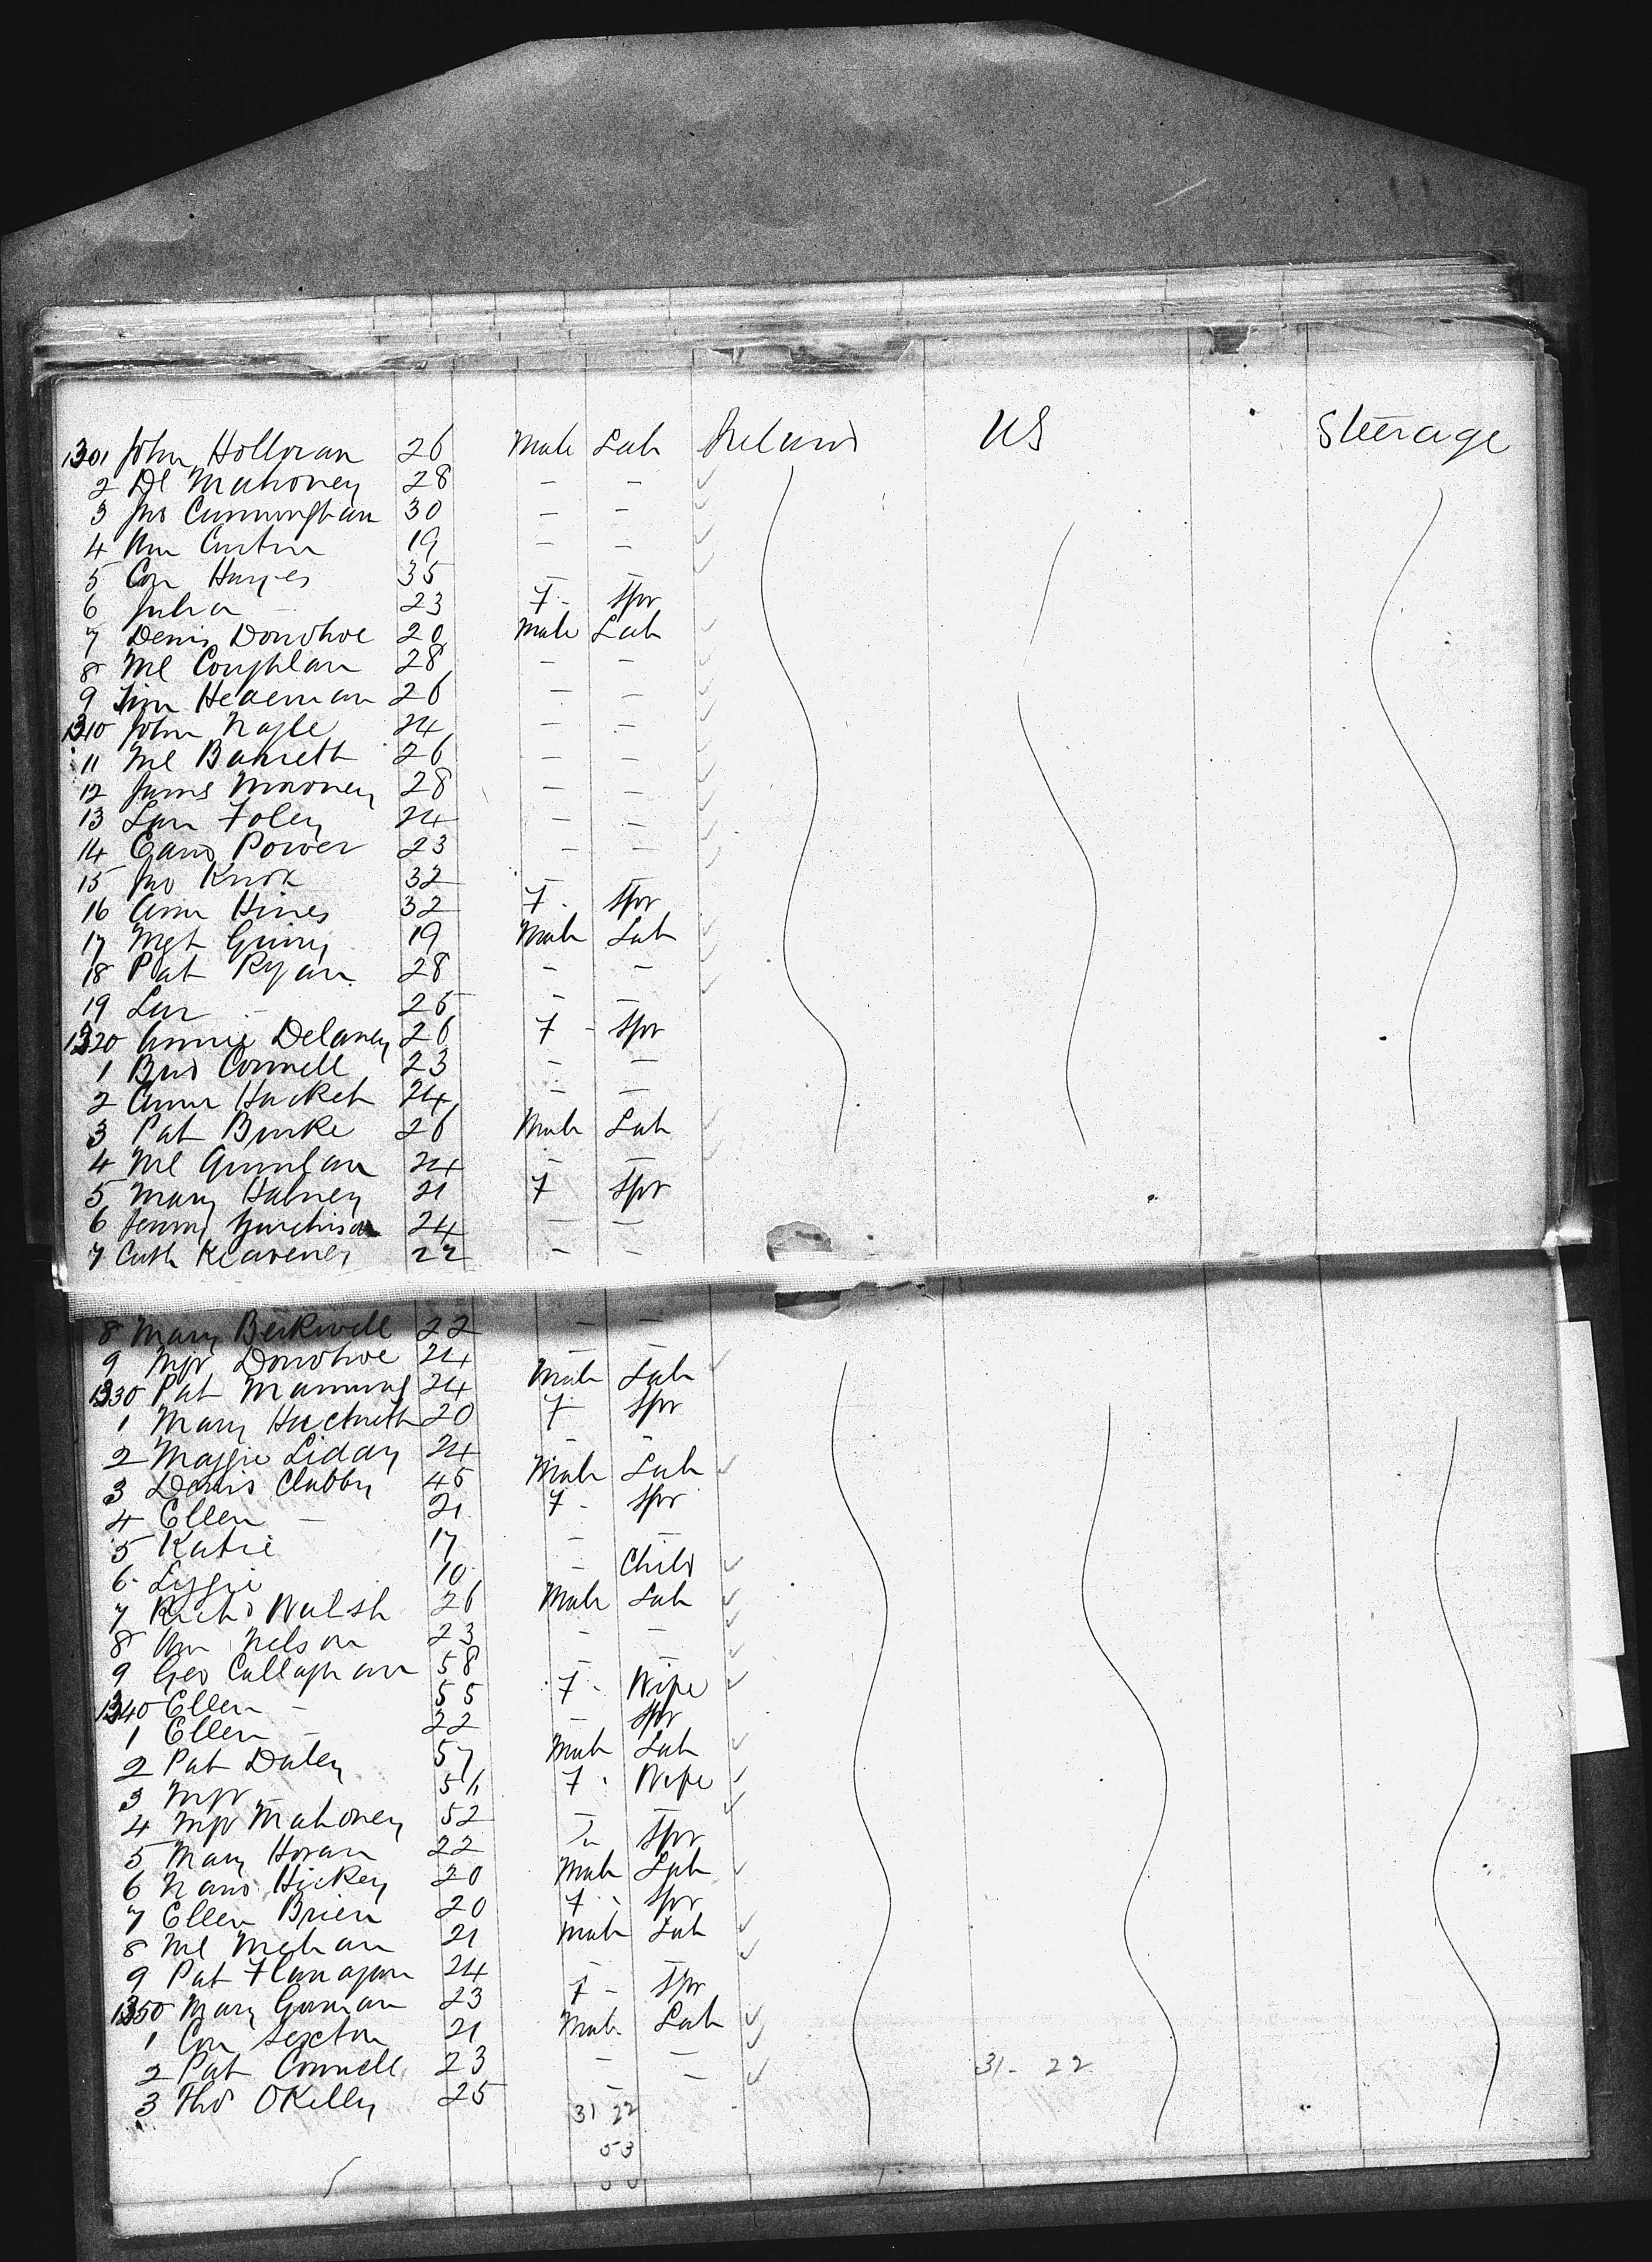 1301 John Holloran 26 Male Lab Ireland US Steerage
2 Dl Mahoney 28 - -
3 Jno Cunningham 30 - -
4 Wm Curtin 19 - -
5 Con Hayes 35 - -
6 Julia - 23 F- Spr
7 Denis Donohoe 20 Male Lab
8 Ml Coughlan 28 - -
9 Tim 26 - -
1310 John Nagle 24 - -
11 Ml Barrett 26 - -
12 James Mooney 28 - -
13 Lau Foley 24 - -
14 Power 23 - -
15 Jno Knox 32 - -
16 Ann Hines 32 F- Spr
17 Mgt 19 Male Lab
18 Pat Ryan 28 - -
19 Lau - 25 - -
1320 Annie Delaney 26 F- Spr
1 Brid Connell 23 - -
2 Anne Hacket 24 - -
3 Pat Burke 26 Male Lab
4 Ml Quinlan 24 - -
5 Mary 21 F Spr
6 24 - -
7 Cath Keaveney 22 - -
8 Mary 22 - -
9 Mgr Donohoe 24 - -
1330 Pat Manning 24 Male Lab
1 Mary 20 F Spr
2 Maggie Liddy 24 - -
3 Denis Clabby 45 Male Lab
4 Ellen - 21 F- Spr
5 Katie 17 - -
6 Lizzie 10 - Child
7 Richd Walsh 26 Male Lab
8 Wm Nelson 23 - -
9 Geo Callaghan 58 - -
1340 Ellen - 55 F- Wife
1 Ellen - 22 - Spr
2 Pat Daley 57 Male Lab
3 Mgr - 56 F- Wife
4 Mgr Mahoney 52 - -
5 Mary Horan 22 Spr
6 Hickey 20 Male Lab
7 Ellen Brien 20 F- Spr
8 Ml Mehan 21 Male Lab
9 Pat Flanagan 24 - -
1350 Mary Gorman 23 F- Spr
1 Con Sexton 21 Male Lab
2 Pat Connell 23 - - 31- 22
3 Tho OKelly 25 - -
31 22
53